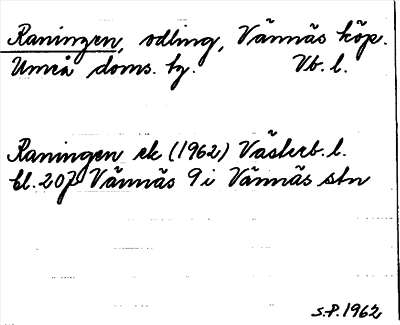 Raningen, odling, Vännäs köp.
Umeå doms. hg. Vb. l.
Raningen ek (1962) Västerb. l.
bl. 207 Vännäs 9 i Vännäs stn
S.P. 1962